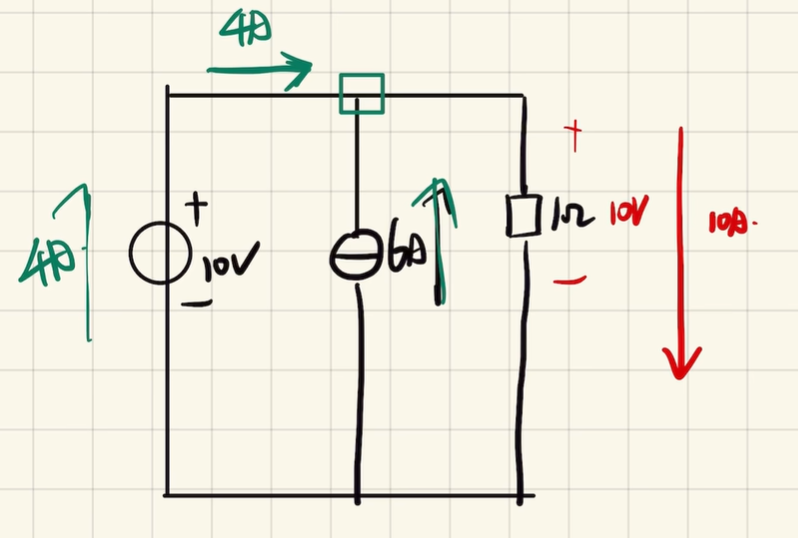 4A
+
+
4A
10V
6A
1Ω
10V
10A.
−
−